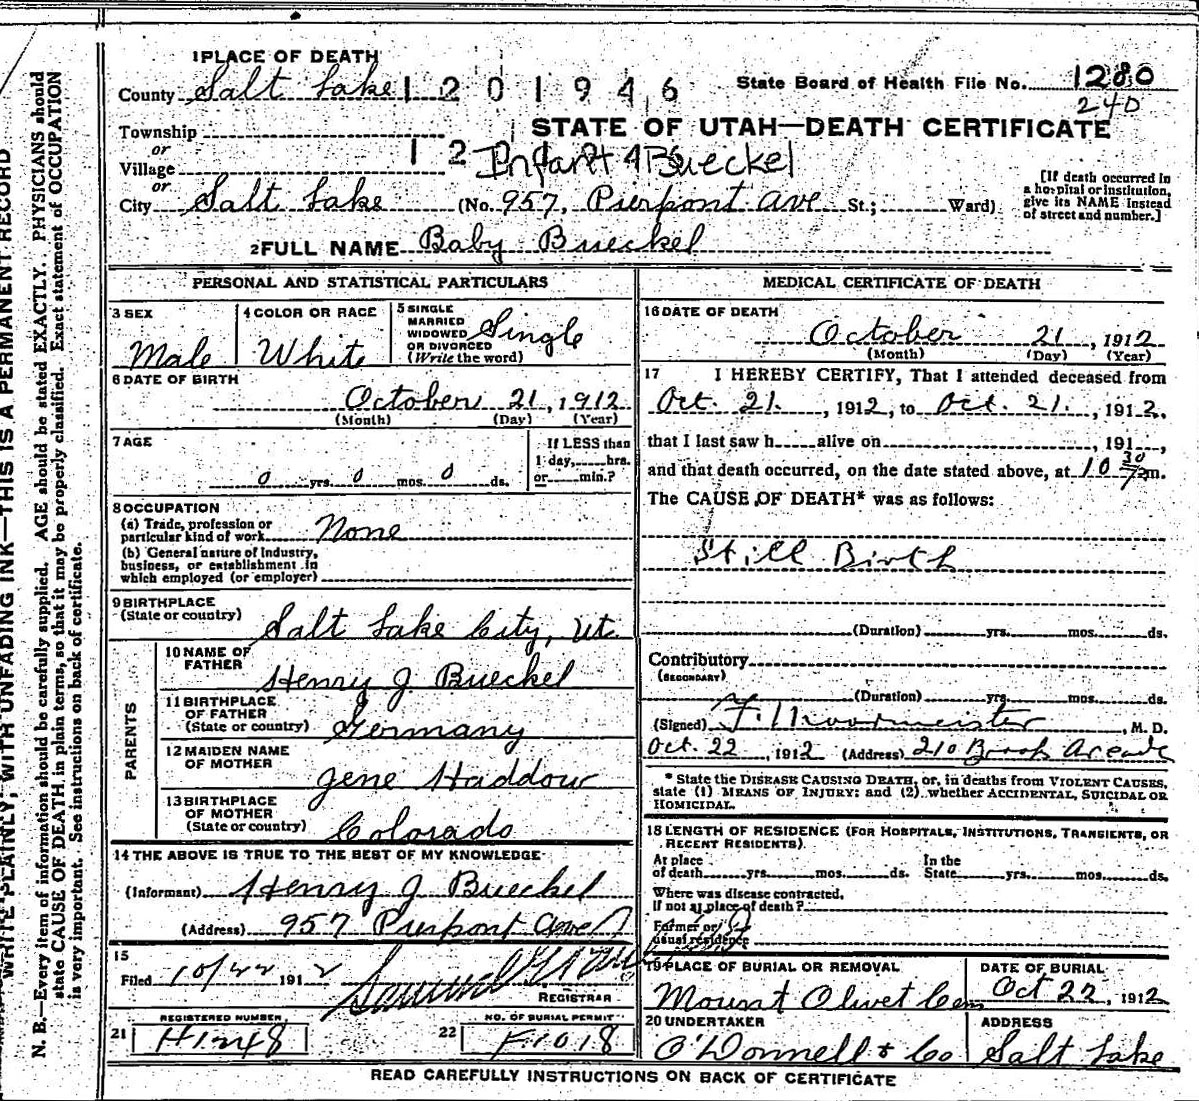 1 PLACE OF DEATH
County Salt Lake 1201946 State Board of Health File No. 1280
240
Township
or
STATE OF UTAH—DEATH CERTIFICATE
Village Infant Bueckel
or
City Salt Lake (No. 957, Pierpont Ave St.; Ward)
[If death occurred in a hospital or institution, give its NAME instead of street and number.]
2 FULL NAME Baby Bueckel
PERSONAL AND STATISTICAL PARTICULARS
3 SEX Male
4 COLOR OR RACE White
5 SINGLE MARRIED WIDOWED OR DIVORCED (Write the word) Single
6 DATE OF BIRTH
October 21, 1912
(Month) (Day) (Year)
7 AGE
0 yrs. 0 mos. 0 ds.
If LESS than 1 day, hrs. or min.?
8 OCCUPATION
(a) Trade, profession or particular kind of work None
(b) General nature of Industry, business, or establishment in which employed (or employer)
9 BIRTHPLACE
(State or country) Salt Lake City, Ut.
PARENTS
10 NAME OF FATHER Henry J Bueckel
11 BIRTHPLACE OF FATHER (State or country) Germany
12 MAIDEN NAME OF MOTHER Gene Haddow
13 BIRTHPLACE OF MOTHER (State or country) Colorado
14 THE ABOVE IS TRUE TO THE BEST OF MY KNOWLEDGE
(Informant) Henry J Bueckel
(Address) 957 Pierpont Ave
15
Filed 10/22 1912 Samuel G
REGISTRAR
REGISTERED NUMBER
21 H1248
NO. OF BURIAL PERMIT
22 F1018
MEDICAL CERTIFICATE OF DEATH
16 DATE OF DEATH
October 21, 1912
(Month) (Day) (Year)
17 I HEREBY CERTIFY, That I attended deceased from
Oct. 21., 1912, to Oct. 21., 1912,
that I last saw h alive on , 191 ,
and that death occurred, on the date stated above, at 10 30 m.
The CAUSE OF DEATH* was as follows:
Still Birth
(Duration) yrs. mos. ds.
Contributory
(SECONDARY)
(Duration) yrs. mos. ds.
(Signed) , M. D.
Oct. 22, 1912 (Address) 210 Arcade
* State the DISEASE CAUSING DEATH, or, in deaths from VIOLENT CAUSES,
state (1) MEANS OF INJURY; and (2) whether ACCIDENTAL, SUICIDAL OR
HOMICIDAL.
18 LENGTH OF RESIDENCE (FOR HOSPITALS, INSTITUTIONS, TRANSIENTS, OR
RECENT RESIDENTS).
At place of death yrs. mos. ds. In the State yrs. mos. ds.
Where was disease contracted,
If not at place of death?
Former or
usual residence
19 PLACE OF BURIAL OR REMOVAL
Mount Olivet Cem
DATE OF BURIAL
Oct 22, 1912
20 UNDERTAKER
O'Donnell & Co
ADDRESS
Salt Lake
READ CAREFULLY INSTRUCTIONS ON BACK OF CERTIFICATE
WRITE PLAINLY, WITH UNFADING INK—THIS IS A PERMANENT RECORD
N. B.—Every item of information should be carefully supplied. AGE should be stated EXACTLY. PHYSICIANS should
state CAUSE OF DEATH in plain terms, so that it may be properly classified. Exact statement of OCCUPATION
is very important. See instructions on back of certificate.